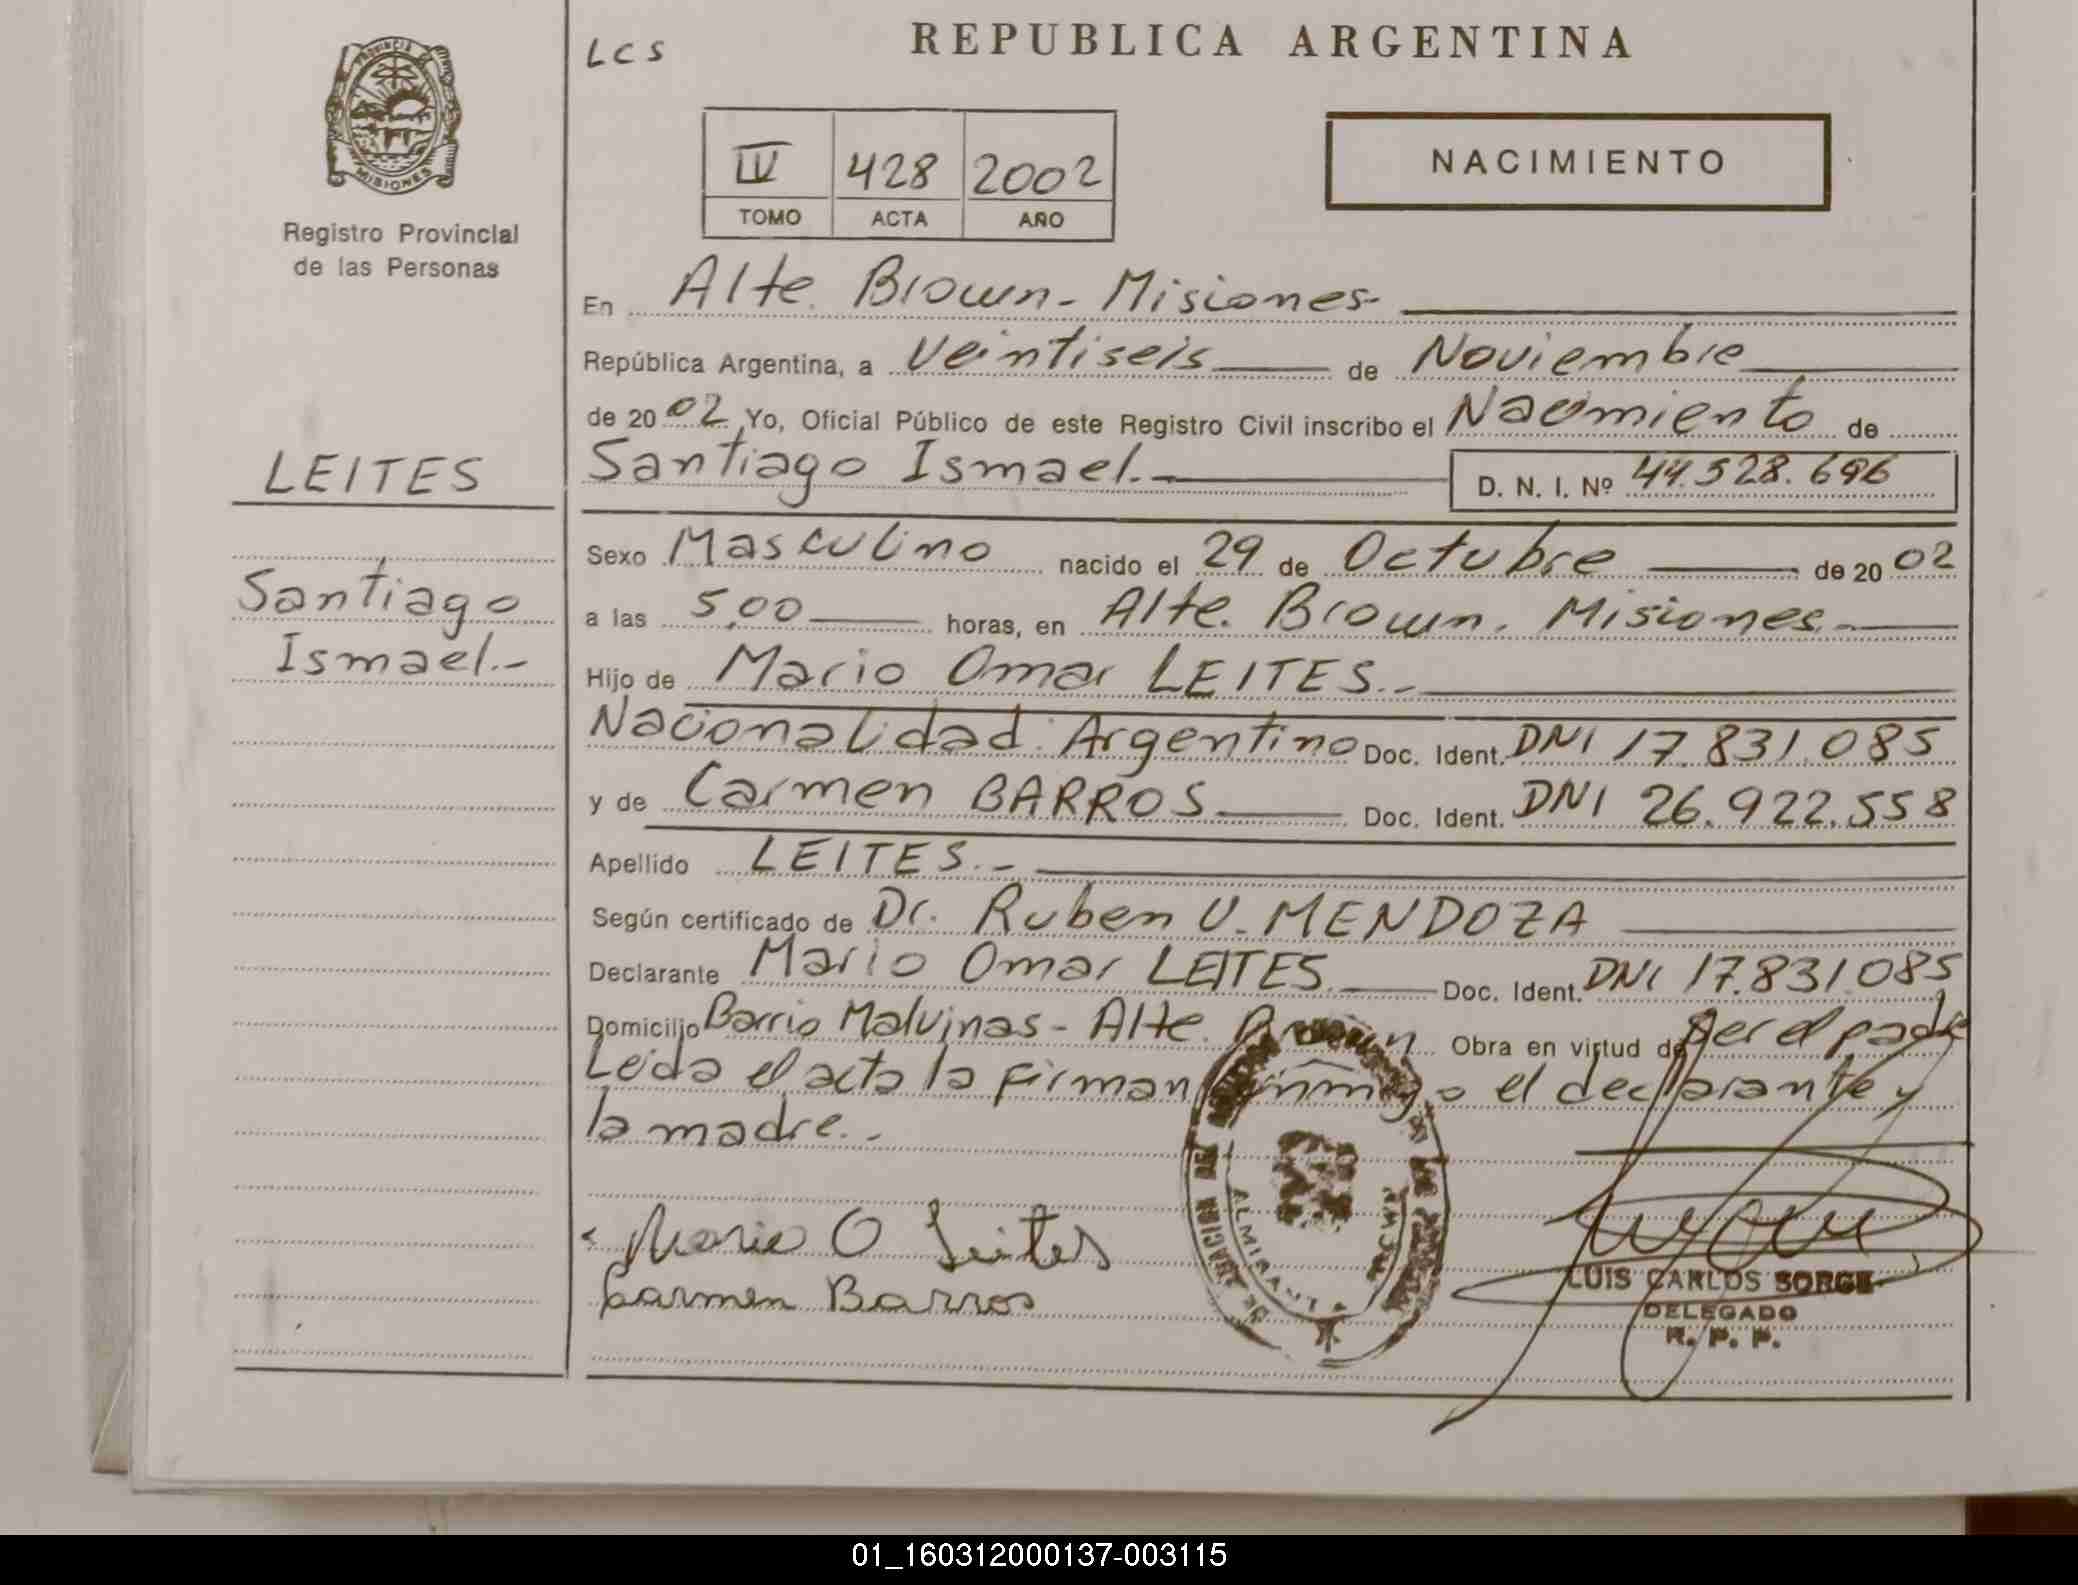 PROVINCIA
MISIONES
Registro Provincial
de las Personas
LEITES
Santiago
Ismael.-
LCS
REPUBLICA ARGENTINA
IV 428 2002
TOMO ACTA AÑO
NACIMIENTO
En Alte. Brown - Misiones-
República Argentina, a Veintiseis de Noviembre
de 2002 Yo, Oficial Público de este Registro Civil inscribo el Nacimiento de
Santiago Ismael.- D. N. I. Nº 44.528.696
Sexo Masculino nacido el 29 de Octubre de 2002
a las 5,00 horas, en Alte. Brown. Misiones.-
Hijo de Mario Omar LEITES.-
Nacionalidad Argentino Doc. Ident. DNI 17.831.085
y de Carmen BARROS Doc. Ident. DNI 26.922.558
Apellido LEITES.-
Según certificado de Dr. Ruben U. MENDOZA
Declarante Mario Omar LEITES Doc. Ident. DNI 17.831.085
Domicilio Barrio Malvinas - Alte. Brown Obra en virtud de ser el padre
Leida el acta la firman conmigo el declarante y
la madre.-
Mario O Leites
Carmen Barros
LUIS CARLOS SORGE
DELEGADO
R. P. P.
01_160312000137-003115